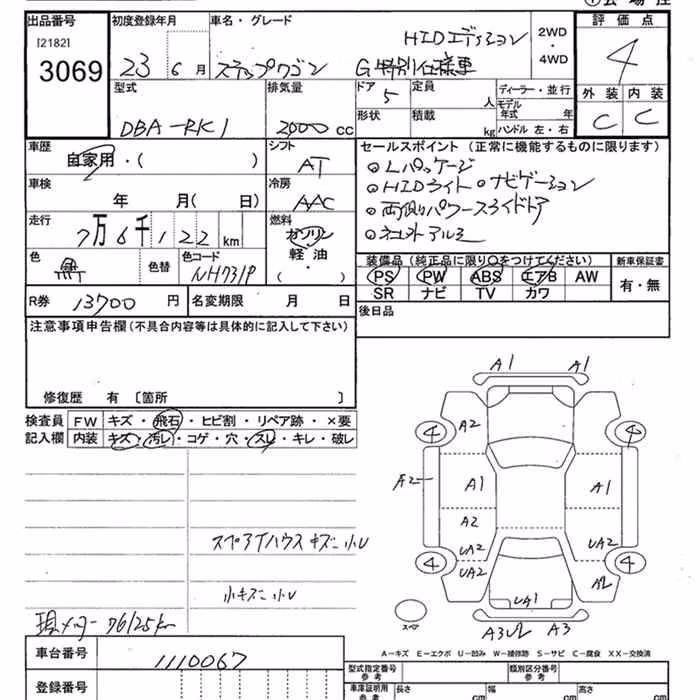 出品番号
[2182]
3069
初度登録年月
23 6 月
車名・グレード
HIDエディション
ステップワゴン G特別仕様車
2WD
・
4WD
評価点
4
外装 内装
C C
型式
DBA-RK1
排気量
2000 cc
ドア
5
形状
定員
人
積載
kg
ディーラー・並行
モデル年式 年
ハンドル 左・右
車歴
自家用・( )
シフト
AT
車検
年 月( 日)
冷房
AAC
走行
7万6千122 km
燃料
ガソリン
軽油
・
( )
色
黒
色替
色コード
NH731P
R券 13700 円
名変期限 月 日
セールスポイント (正常に機能するものに限ります)
○Lパッケージ
○HIDライト ○ナビゲーション
○両側パワースライドドア
○社外アルミ
装備品 (純正品に限り○をつけてください)
PS PW ABS エアB AW
SR ナビ TV カワ
新車保証書
有・無
後日品
注意事項申告欄 (不具合内容等は具体的に記入して下さい)
修復歴 有 〔箇所 〕
検査員記入欄
FW キズ・飛石・ヒビ割・リペア跡・×要
内装 キズ・汚レ・コゲ・穴・スレ・キレ・破レ
スペアTハウス キズ 小U
小キズ 小U
現メーター 76125km
車台番号
1110067
登録番号
A1 A1
4 A2 4
A2 A1 A1
A2
UA2 UA2
4 UA2 A2 4
UA1
スペア
A3 A3
A-キズ E-エクボ U-凹み W-補修跡 S-サビ C-腐食 XX-交換済
型式指定番号
参考
類別区分番号
参考
車庫証明用
参考
長さ cm
幅 cm
高さ cm